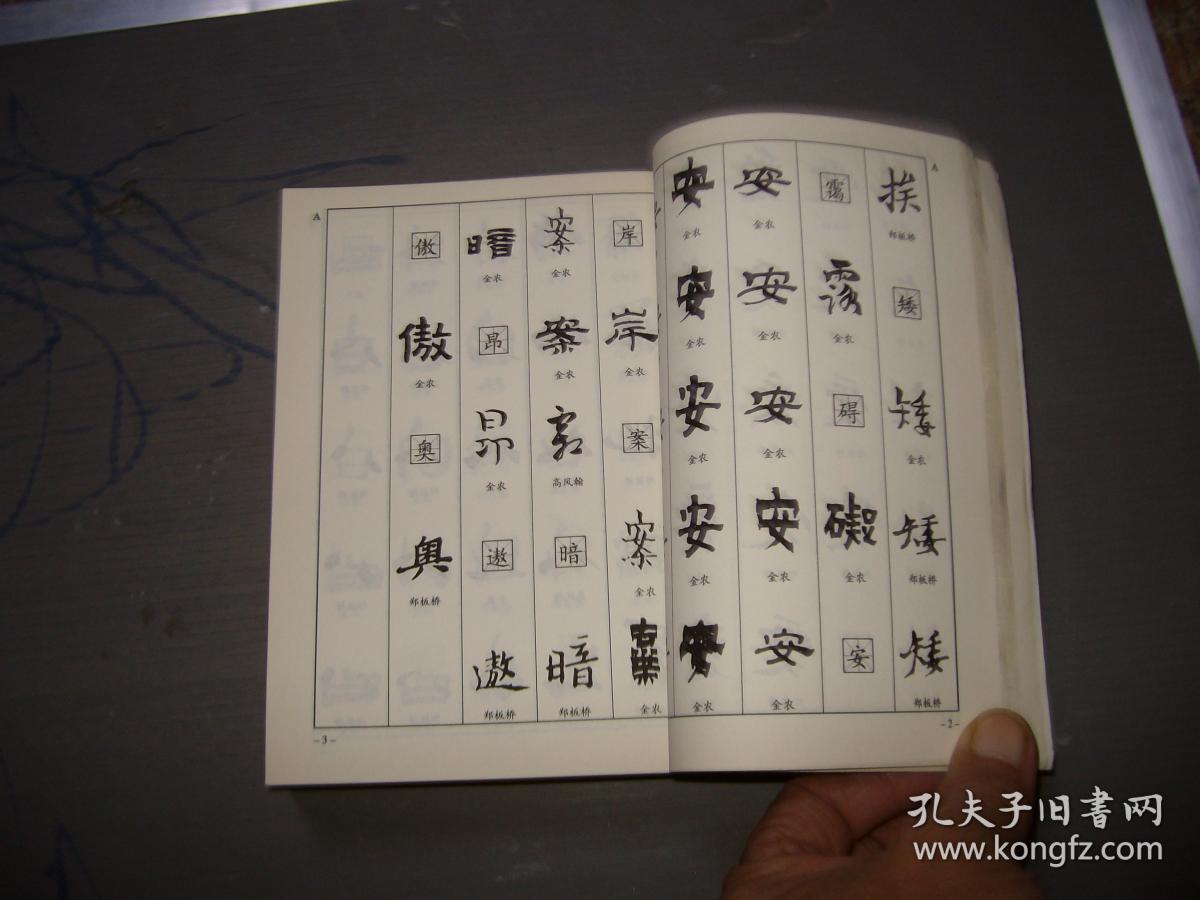 A
挨
郑板桥
矮
矮
金农
矮
郑板桥
矮
郑板桥
霭
金农
碍
礙
金农
安
安
金农
安
金农
安
金农
安
金农
安
金农
安
金农
安
金农
安
金农
安
金农
安
金农
-2-
A
岸
岸
金农
案
案
金农
金农
案
金农
案
金农
高凤翰
暗
暗
郑板桥
暗
金农
昂
昂
金农
遨
遨
郑板桥
傲
傲
金农
奥
奥
郑板桥
-3-
孔夫子旧书网
www.kongfz.com